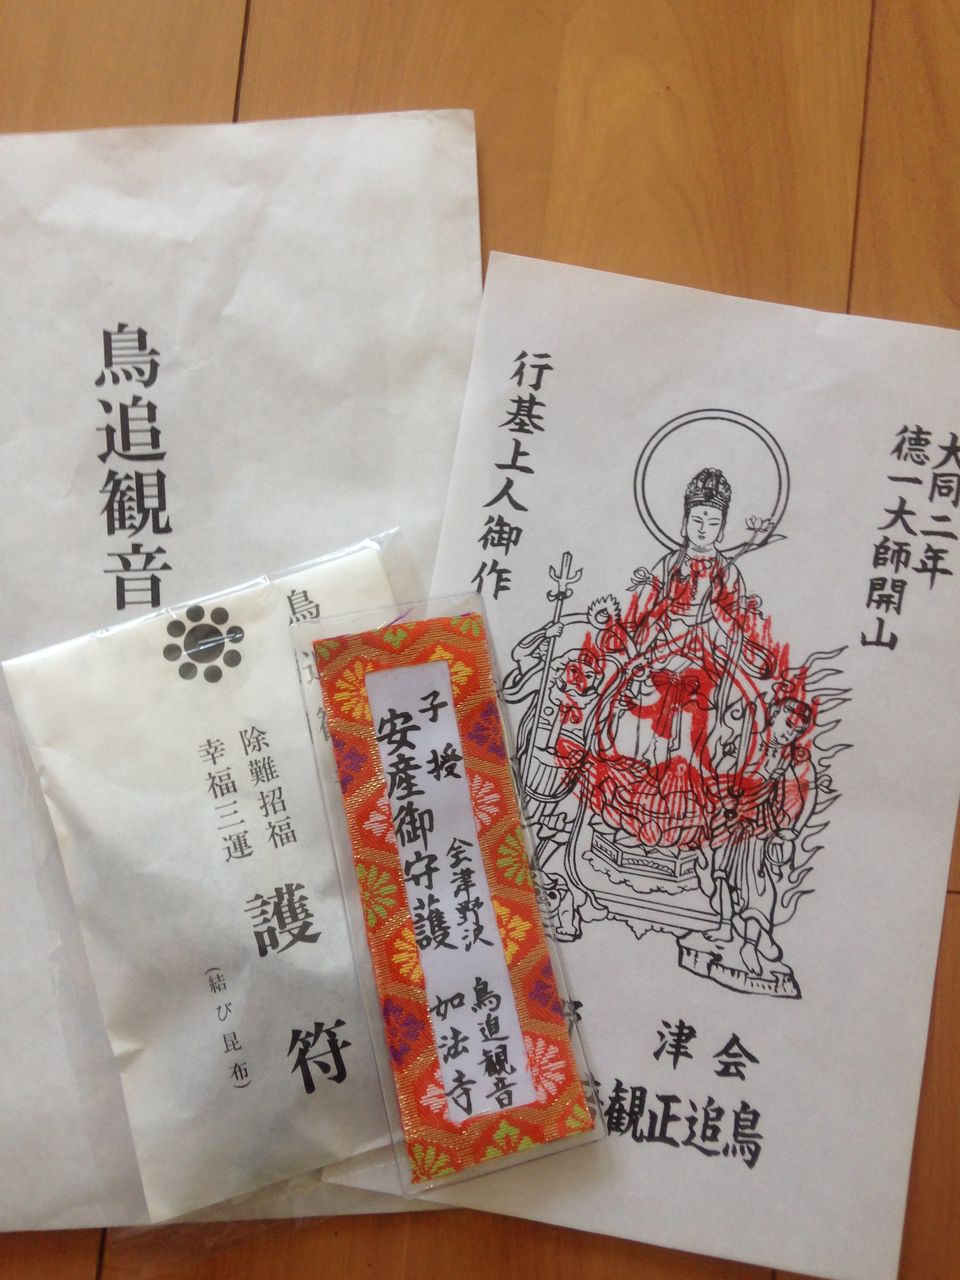 鳥追観音
大同二年
徳一大師開山
行基上人御作
会津
鳥追正観
鳥追
除難招福
幸福三運
護符
(結び昆布)
子授
安産御守護
会津野沢
鳥追観音
如法寺